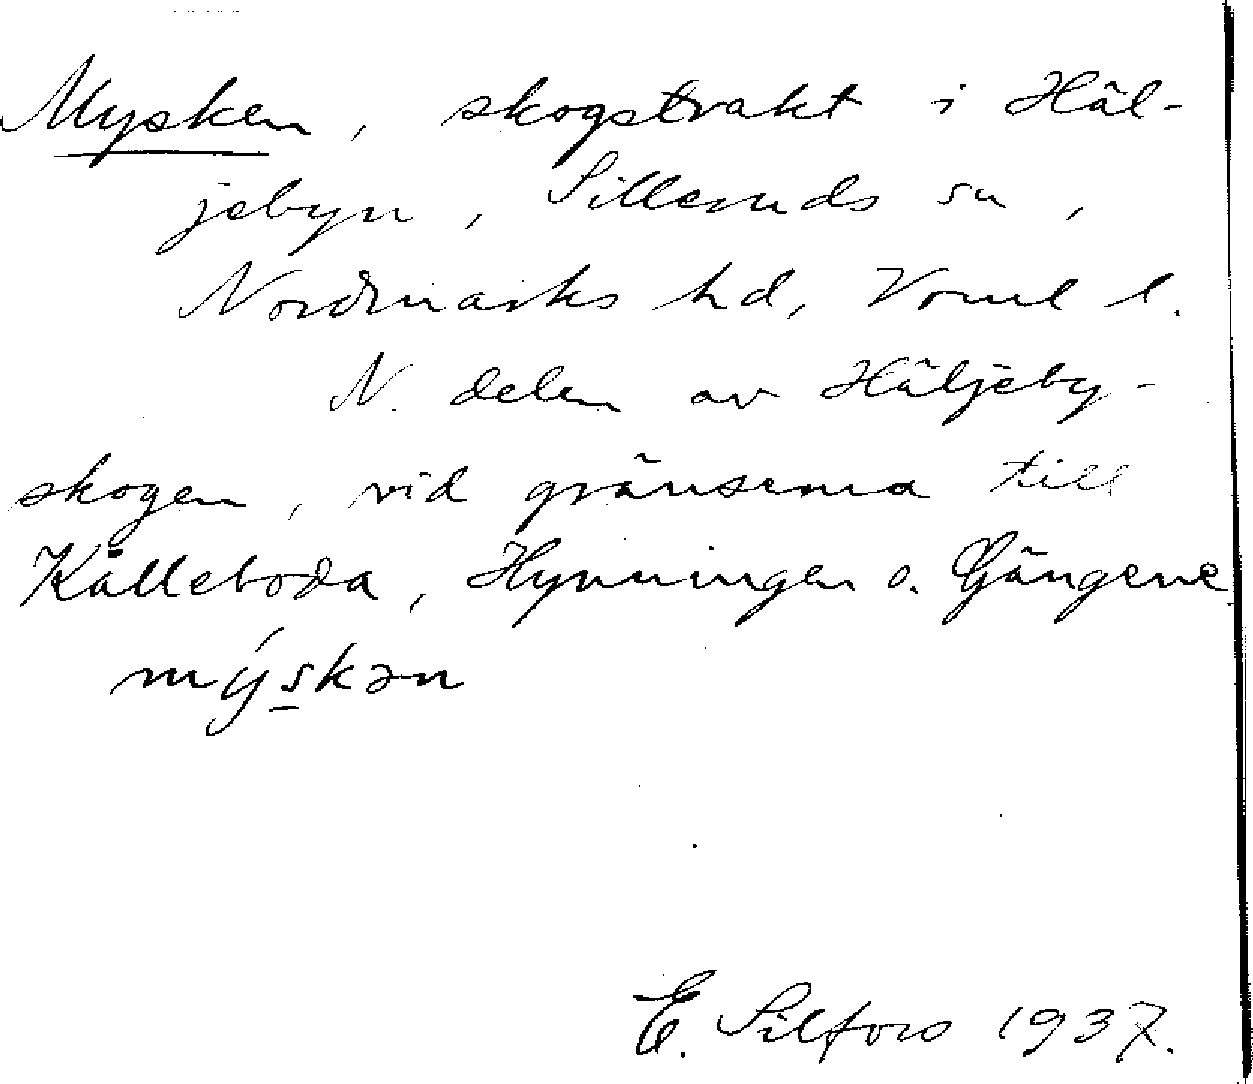 Mysken, skogstrakt i Häl-
jebyn, Silleruds sn,
Nordmarks hd, Vörml l.
N. delen av Häljeby-
skogen, vid gränserna till
Kålleboda, Hynningen o. Gängene
mýskən
E. Silfors 1937.